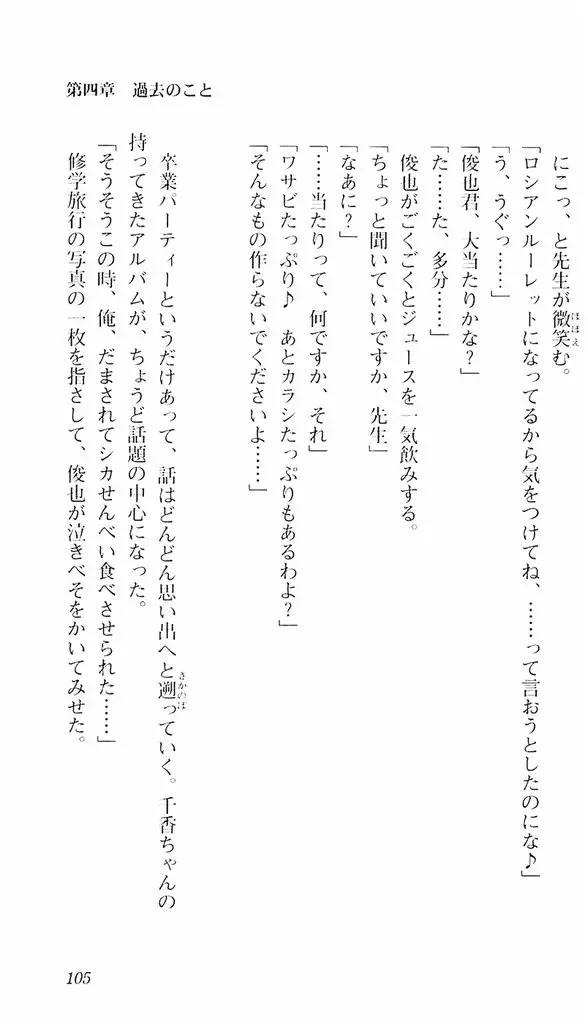 第四章　過去のこと
にこっ、と先生が微笑む。
ほほえ
「ロシアンルーレットになってるから気をつけてね、……って言おうとしたのにな♪」
「う、うぐっ……」
「俊也君、大当たりかな？」
「た……た、多分……」
俊也がごくごくとジュースを一気飲みする。
「ちょっと聞いていいですか、先生」
「なあに？」
「……当たりって、何ですか、それ」
「ワサビたっぷり♪　あとカラシたっぷりもあるわよ？」
「そんなもの作らないでくださいよ……」
卒業パーティーというだけあって、話はどんどん思い出へと遡っていく。千香ちゃんの
さかのぼ
持ってきたアルバムが、ちょうど話題の中心になった。
「そうそうこの時、俺、だまされてシカせんべい食べさせられた……」
修学旅行の写真の一枚を指さして、俊也が泣きべそをかいてみせた。
105